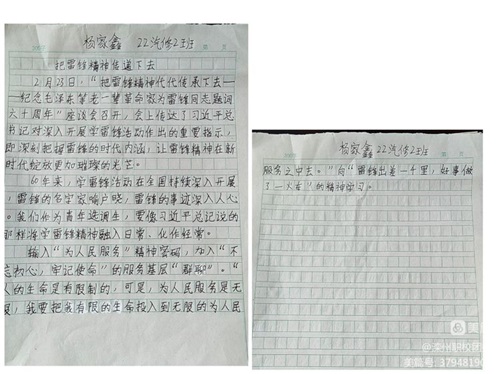 杨家鑫 22汽修2班
把雷锋精神传递下去
2月23日，"把雷锋精神代代传承下去——
纪念毛泽东等老一辈革命家为雷锋同志题词
六十周年"座谈会召开，会上传达了习近平总
书记对深入开展学雷锋活动作出的重要指示，
即深刻把握雷锋的时代内涵，让雷锋精神在新
时代绽放更加璀璨的光芒。
60年来，学雷锋活动在全国持续深入开展
，雷锋的名字家喻户晓，雷锋的事迹深入人心
。我们作为青年选调生，要像习近平总记说的
那样将学雷锋精神融入日常、化作经常。
输入"为人民服务"精神密码，加入"不
忘初心，牢记使命"的服务基层"群聊"。"
人的生命是有限制的，可是，为人民服务是无
限，我要把我有限的生命投入到无限的为人民
杨家鑫 22汽修2班
服务之中去。"向"雷锋出差一千里，好事做
了一火车"的精神学习。
@滦州职校团
美篇号 3794819